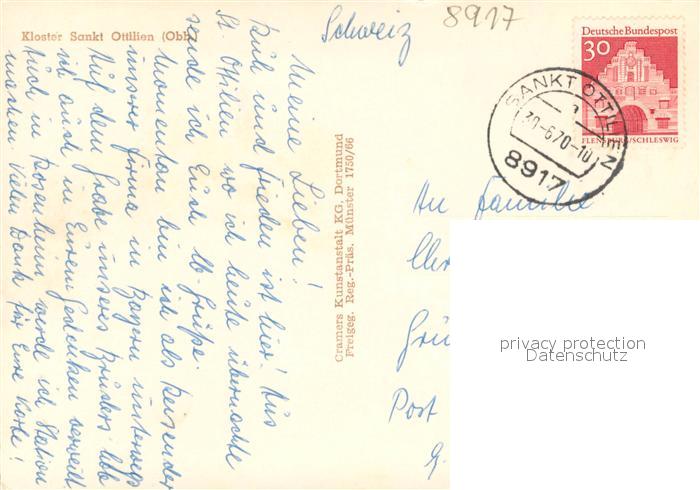 Kloster Sankt Ottilien (Obb)
Schweiz
8917
Deutsche Bundespost
30
FLENSBURG/SCHLESWIG
SANKT OTTILIEN
a
30-6.70-10
8917
Meine Lieben!
Ruh und Frieden ist hier! Aus
St. Ottilien wo ich heute übernachte
sende ich Euch lb. Grüße.
Momentan bin ich als Reisender
unsrer Firma in Bayern unterwegs
Auf dem Grabe unseres Bruders habe
ich auch in Eurem Gedenken verweilt.
Auch in Rosenheim werde ich Station
machen. Vielen Dank für Eure Karte!
Cramers Kunstanstalt KG. Dortmund
Freigeg. Reg.-Präs. Münster 1750/66
An Familie
Chr
Grü
Post
G.
privacy protection
Datenschutz